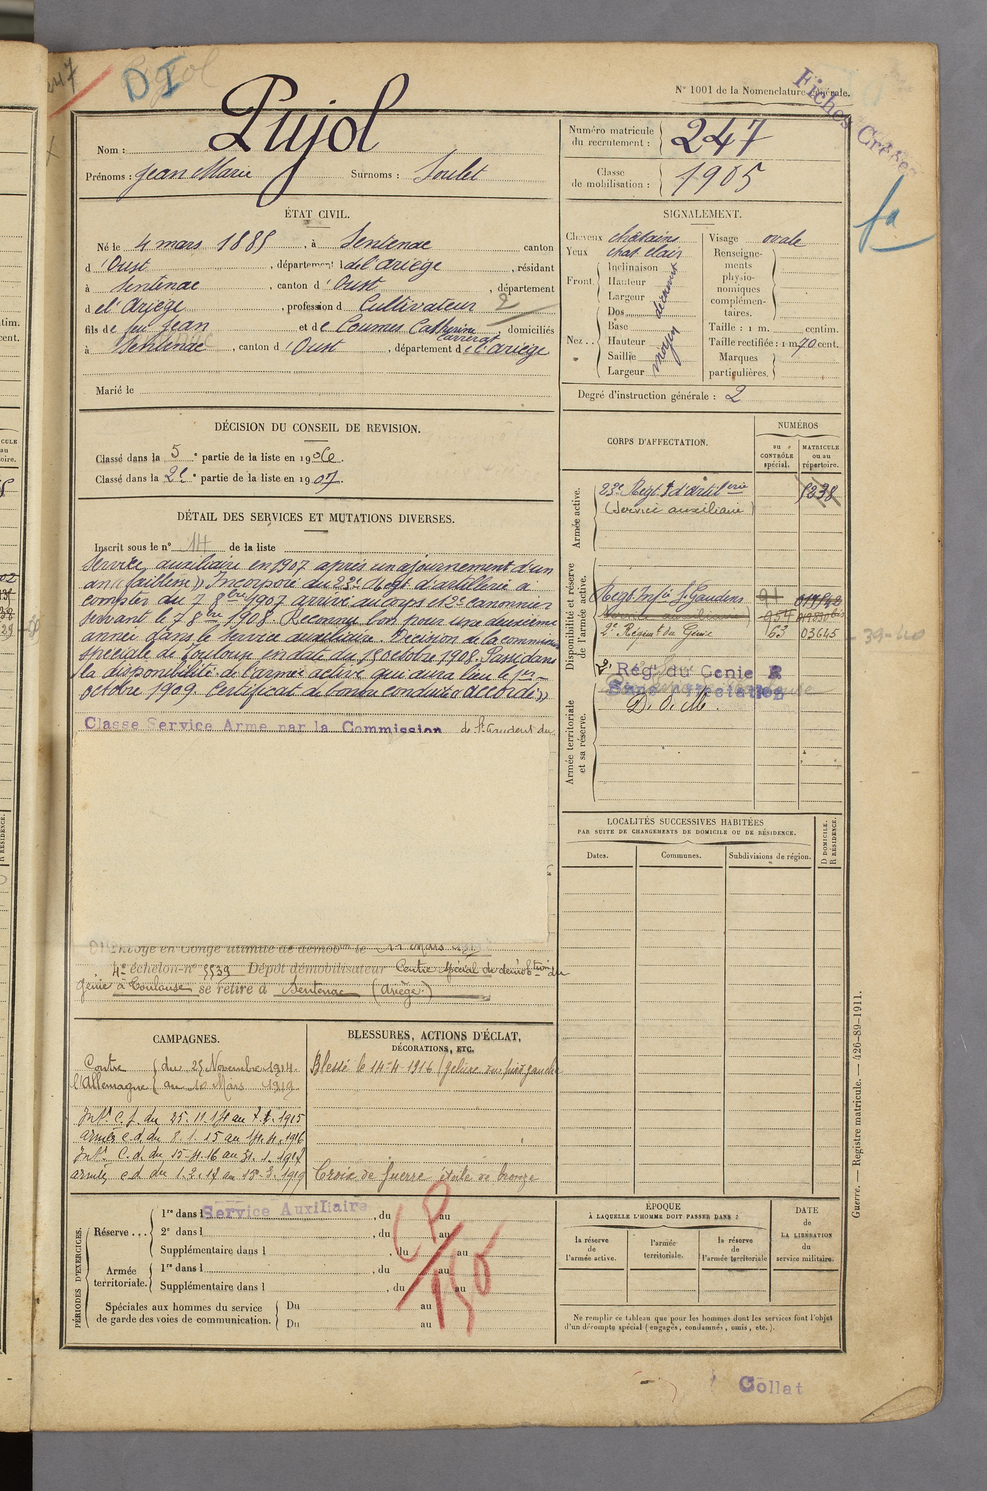 247
DI
Pujol
N° 1001 de la Nomenclature générale.
Fiches Créées
fa
Nom : Pujol
Prénoms : Jean Marie Surnoms : Soulet
Numéro matricule du recrutement : 247
Classe de mobilisation : 1905
ÉTAT CIVIL.
Né le 4 mars 1885, à Sentenac canton
d'Oust, département de l'Ariège, résidant
à Sentenac, canton d'Oust, département
d el'Ariège, profession d Cultivateur 2
fils de feu Jean et de Coumes Catherine, domiciliés
à Sentenac, canton d'Oust, département de l'Ariège
Marié le
SIGNALEMENT.
Cheveux châtains
Yeux chat. clair
Front. Inclinaison
Hauteur
Largeur
Nez.. Dos
Base moyen
Hauteur
Saillie
Largeur
Visage ovale
Renseignements physionomiques complémentaires.
Taille : 1 m. centim.
Taille rectifiée : 1 m 70 cent.
Marques particulières.
Degré d'instruction générale : 2
DÉCISION DU CONSEIL DE REVISION.
Classé dans la 5e partie de la liste en 1906.
Classé dans la 2e partie de la liste en 1907.
DÉTAIL DES SERVICES ET MUTATIONS DIVERSES.
Inscrit sous le n° 14 de la liste
Service auxiliaire en 1907 après un ajournement d'un
an (faiblesse) Incorporé du 23e Regt d'artillerie à
compter du 7 8bre 1907 arrivé au corps et 2e canonnier
servant le 7 8bre 1908. Reconnu bon pour une deuxième
année dans le service auxiliaire. Décision de la commission
spéciale de Toulouse en date du 15 octobre 1908. Passé dans
la disponibilité de l'armée active qui aura lieu le 1er
octobre 1909. Certificat de bonne conduite "accordé"
Classe Service Armé par la Commission de St Gaudens du
Envoyé en congé illimité de démobon le Mars
4e échelon n° 5539 Dépôt démobilisateur Centre Spécial de démobtion du
génie à Toulouse se retire à Sentenac (Ariège)
CORPS D'AFFECTATION.
NUMÉROS
au CONTRÔLE spécial.
MATRICULE ou au répertoire.
Armée active.
23e Regt d'artillerie
(Service auxiliaire)
Disponibilité et réserve de l'armée active.
Regt Infie St Gaudens
2e Régiment du Génie 63 03645
39-40
2e Rég. du Genie R
Sans affectation
D. d. M.
Armée territoriale et sa réserve.
LOCALITÉS SUCCESSIVES HABITÉES
PAR SUITE DE CHANGEMENTS DE DOMICILE OU DE RÉSIDENCE.
Dates.
Communes.
Subdivisions de région.
D DOMICILE. R RÉSIDENCE.
CAMPAGNES.
Contre l'Allemagne du 25 Novembre 1914
au 10 Mars 1919
Intr C.S. du 25.11.14 au 7.1.1915
armées c.d. du 8.1.15 au 14.4.1916
Intr C.d. du 15-4.16 au 31.1.1917
armées c.d. du 1.2.17 au 10.3.1919
BLESSURES, ACTIONS D'ÉCLAT,
DÉCORATIONS, ETC.
Blessé le 14-4-1916 (gelure du pied gauche
Croix de Guerre étoile de bronze
PÉRIODES D'EXERCICES.
Réserve...
1re dans l Service Auxiliaire, du au
2e dans l , du au
Supplémentaire dans l , du au
Armée territoriale.
1re dans l , du au
Supplémentaire dans l , du au
Spéciales aux hommes du service de garde des voies de communication.
Du au
Du au
CP
150
ÉPOQUE
À LAQUELLE L'HOMME DOIT PASSER DANS :
la réserve de l'armée active.
l'armée territoriale.
la réserve de l'armée territoriale
DATE de LA LIBÉRATION du service militaire.
Ne remplir ce tableau que pour les hommes dont les services font l'objet
d'un décompte spécial (engagés, condamnés, omis, etc.).
Guerre. — Registre matricule. — 426-89-1911.
Collat